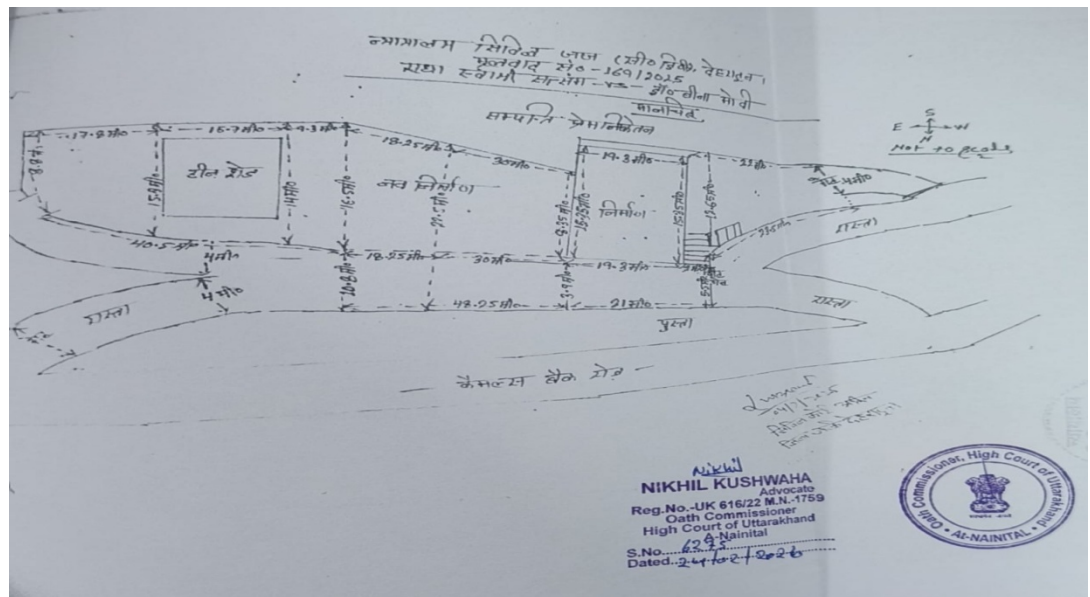 न्यायालय सिविल जज (सी० डिवी०) देहरादून
मूलवाद सं० - 169/2025
राधा स्वामी सत्संग -vs- डॉ० वीना मोवी
मानचित्र
सम्पत्ति प्रेमनिकेतन
S
E W
N
Not to scale
17.8मी०
15.7मी०
9.3मी०
18.25मी०
30मी०
19.3मी०
8.8मी०
15.9मी०
टीन शैड
14मी०
16.5मी०
नव निर्माण
21.5मी०
9.35मी०
15.25मी०
निर्माण
15.25मी०
13.65मी०
रास्ता
40.5मी०
4मी०
18.25मी०
30मी०
19.3मी०
4मी०
20.8मी०
3.9मी०
48.25मी०
21मी०
रास्ता
रास्ता
पुस्ता
कैमल्स बैक रोड
Nikhil
NIKHIL KUSHWAHA
Advocate
Reg.No.-UK 616/22 M.N.-1759
Oath Commissioner
High Court of Uttarakhand
A-Nainital
S.No. 6275
Dated. 24/02/2026
Oath Commissioner, High Court of Uttarakhand
At-NAINITAL